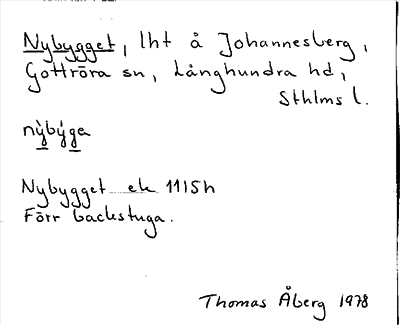 Nybygget, lht å Johannesberg,
Gottröra sn, Långhundra hd,
Sthlms l.
nỳbýga
Nybygget ek 11I5h
Förr backstuga.
Thomas Åberg 1978